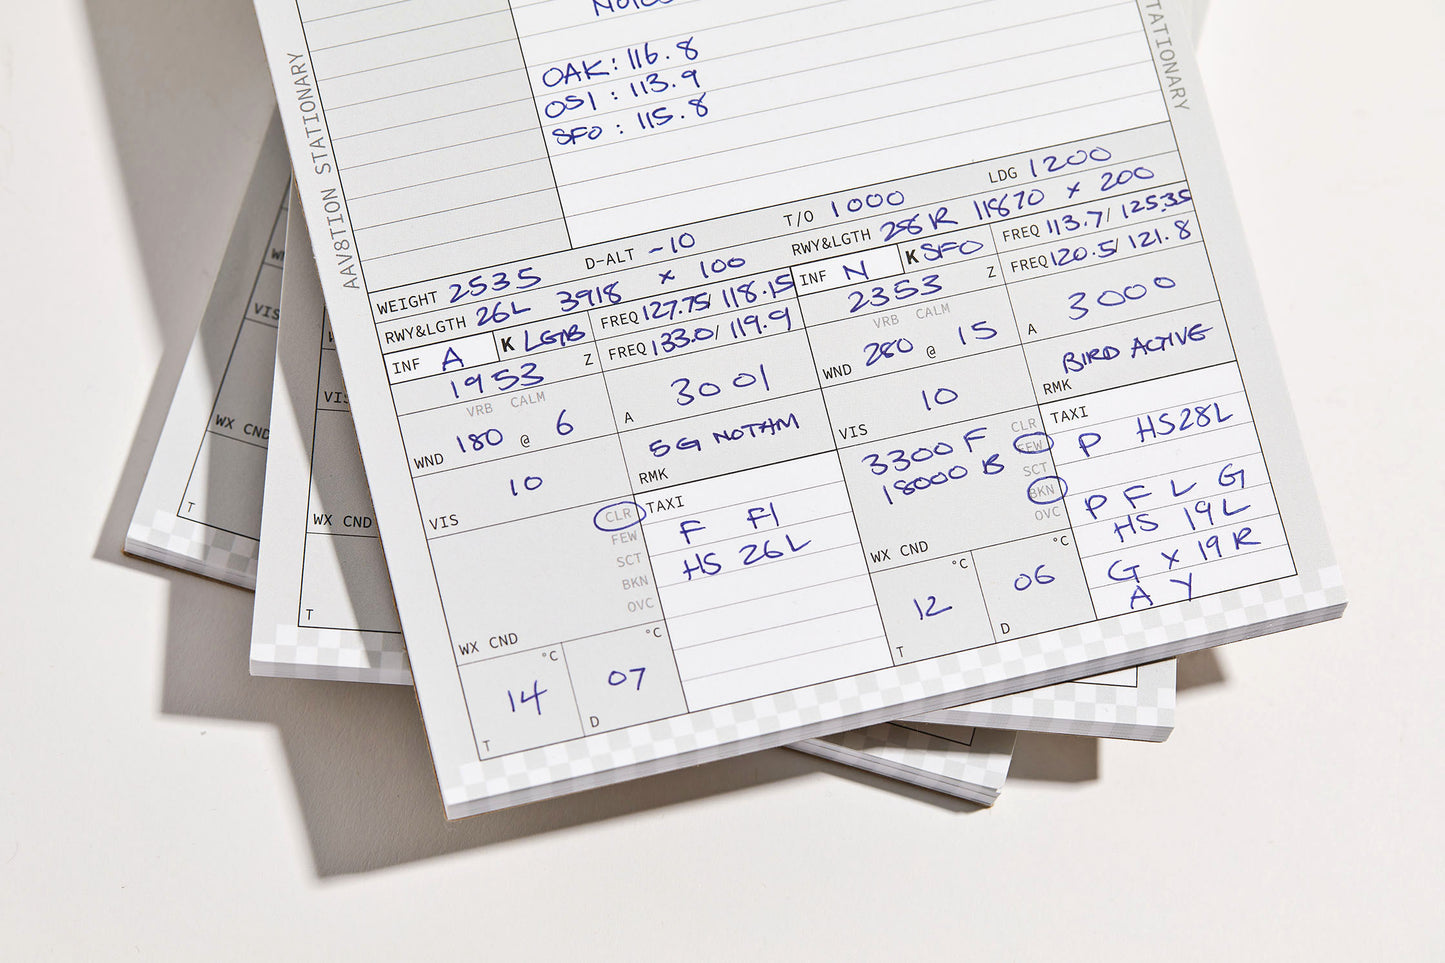 AAV8TION STATIONARY
STATIONARY
OAK: 116.8
OSI: 113.9
SFO: 115.8
WEIGHT 2535 D-ALT -10 T/O 1000 LDG 1200
RWY&LGTH 26L 3918 x 100 RWY&LGTH 28R 11870 x 200
INF A K FREQ 127.75/ 118.15 INF N K SFO FREQ 113.7/ 125.35
1953 Z FREQ 133.0/ 119.9 2353 Z FREQ 120.5/ 121.8
VRB CALM VRB CALM
WND 180 @ 6 A 3001 WND 280 @ 15 A 3000
VIS 10 RMK 5G NOTAM VIS 10 RMK BIRD ACTIVE
CLR TAXI 3300 F CLR TAXI
FEW F F1 18000 B FEW P HS28L
SCT HS 26L SCT P F L G
BKN BKN HS 19L
OVC OVC G x 19R
WX CND WX CND A Y
14 °C 07 °C 12 °C 06 °C
T D T D
WX CND
T
VIS
WX CND
T